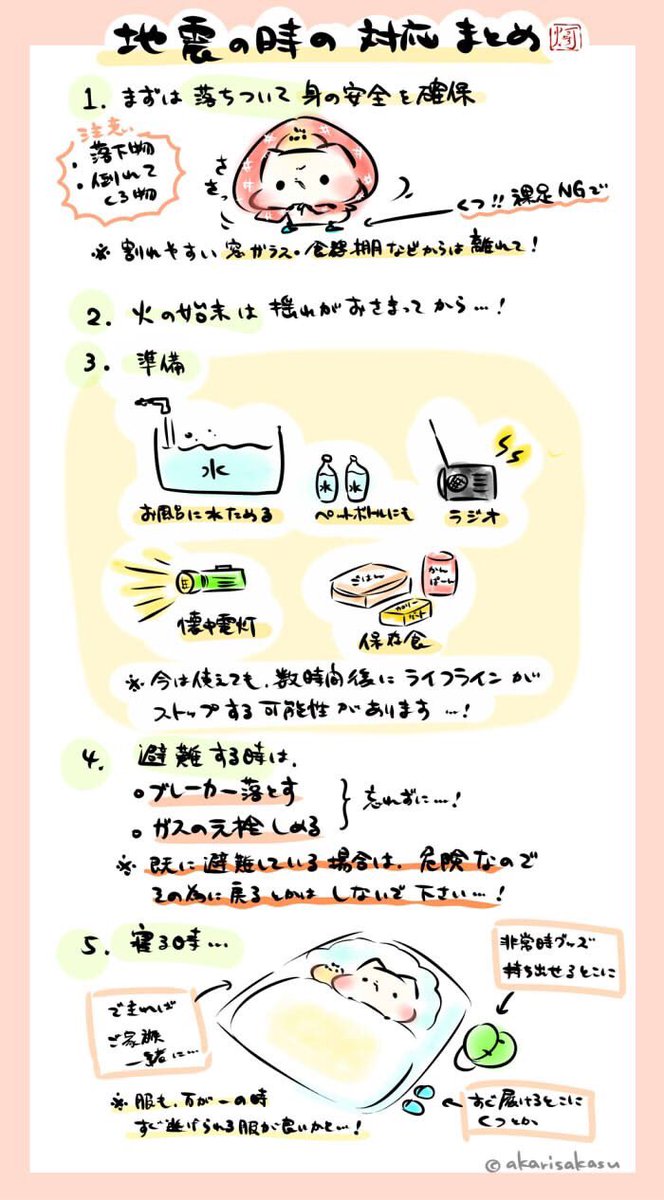 地震の時の対応まとめ
1. まずは落ちついて身の安全を確保
注意
・落下物
・倒れて
くる物
ささっ
くつ!!裸足NGで
※割れやすい窓ガラス・食器棚などからは離れて!
2. 火の始末は揺れがおさまってから…!
3. 準備
水
お風呂に水ためる
水 水
ペットボトルにも
ラジオ
懐中電灯
ごはん
かん
ぱーん
保存食
※今は使えても、数時間後にライフラインが
ストップする可能性があります…!
4. 避難する時は、
○ブレーカー落とす
○ガスの元栓しめる
忘れずに…!
※既に避難している場合は、危険なので
その為に戻るとかはしないで下さい…!
5. 寝る時…
非常時グッズ
持ち出せるとこに
できれば
ご家族
一緒に…
※服も、万が一の時
すぐ逃げられる服が良いかと…!
すぐ履けるとこに
くつとか
©akarisakasu